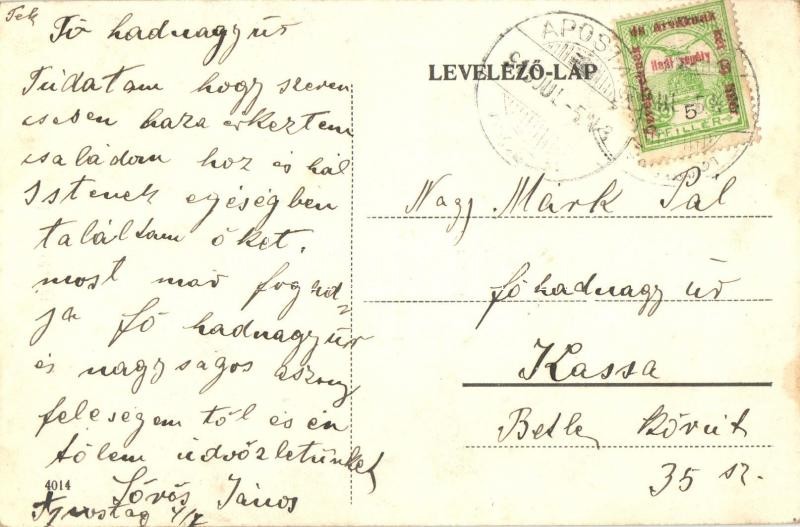 Tek
Fő hadnagy úr
Tudatom hogy szeren
csésen haza érkeztem
családom hoz és hál
Istenek egéségben
találtam őket.
most már fogad
ja Fő hadnagy úr
és nagyságos aszony
feleségem től és én
tőlem üdvözletünket
Sőrős János
Apostag 4/7
4014
LEVELEZŐ-LAP
APOST
Hadi segély
5
FILLÉR
Nagy Márk Pál
főhadnagy úr
Kassa
Betlen Körút
35 sz.